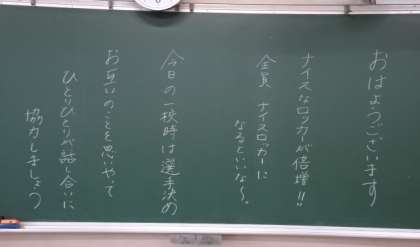 おはようございます
ナイスなロッカーが倍増!!
全員 ナイスロッカーに
なるといいな〜。
今日の一校時は選手決め
お互いのことを思いやって
ひとりひとりが話し合いに
協力しましょう